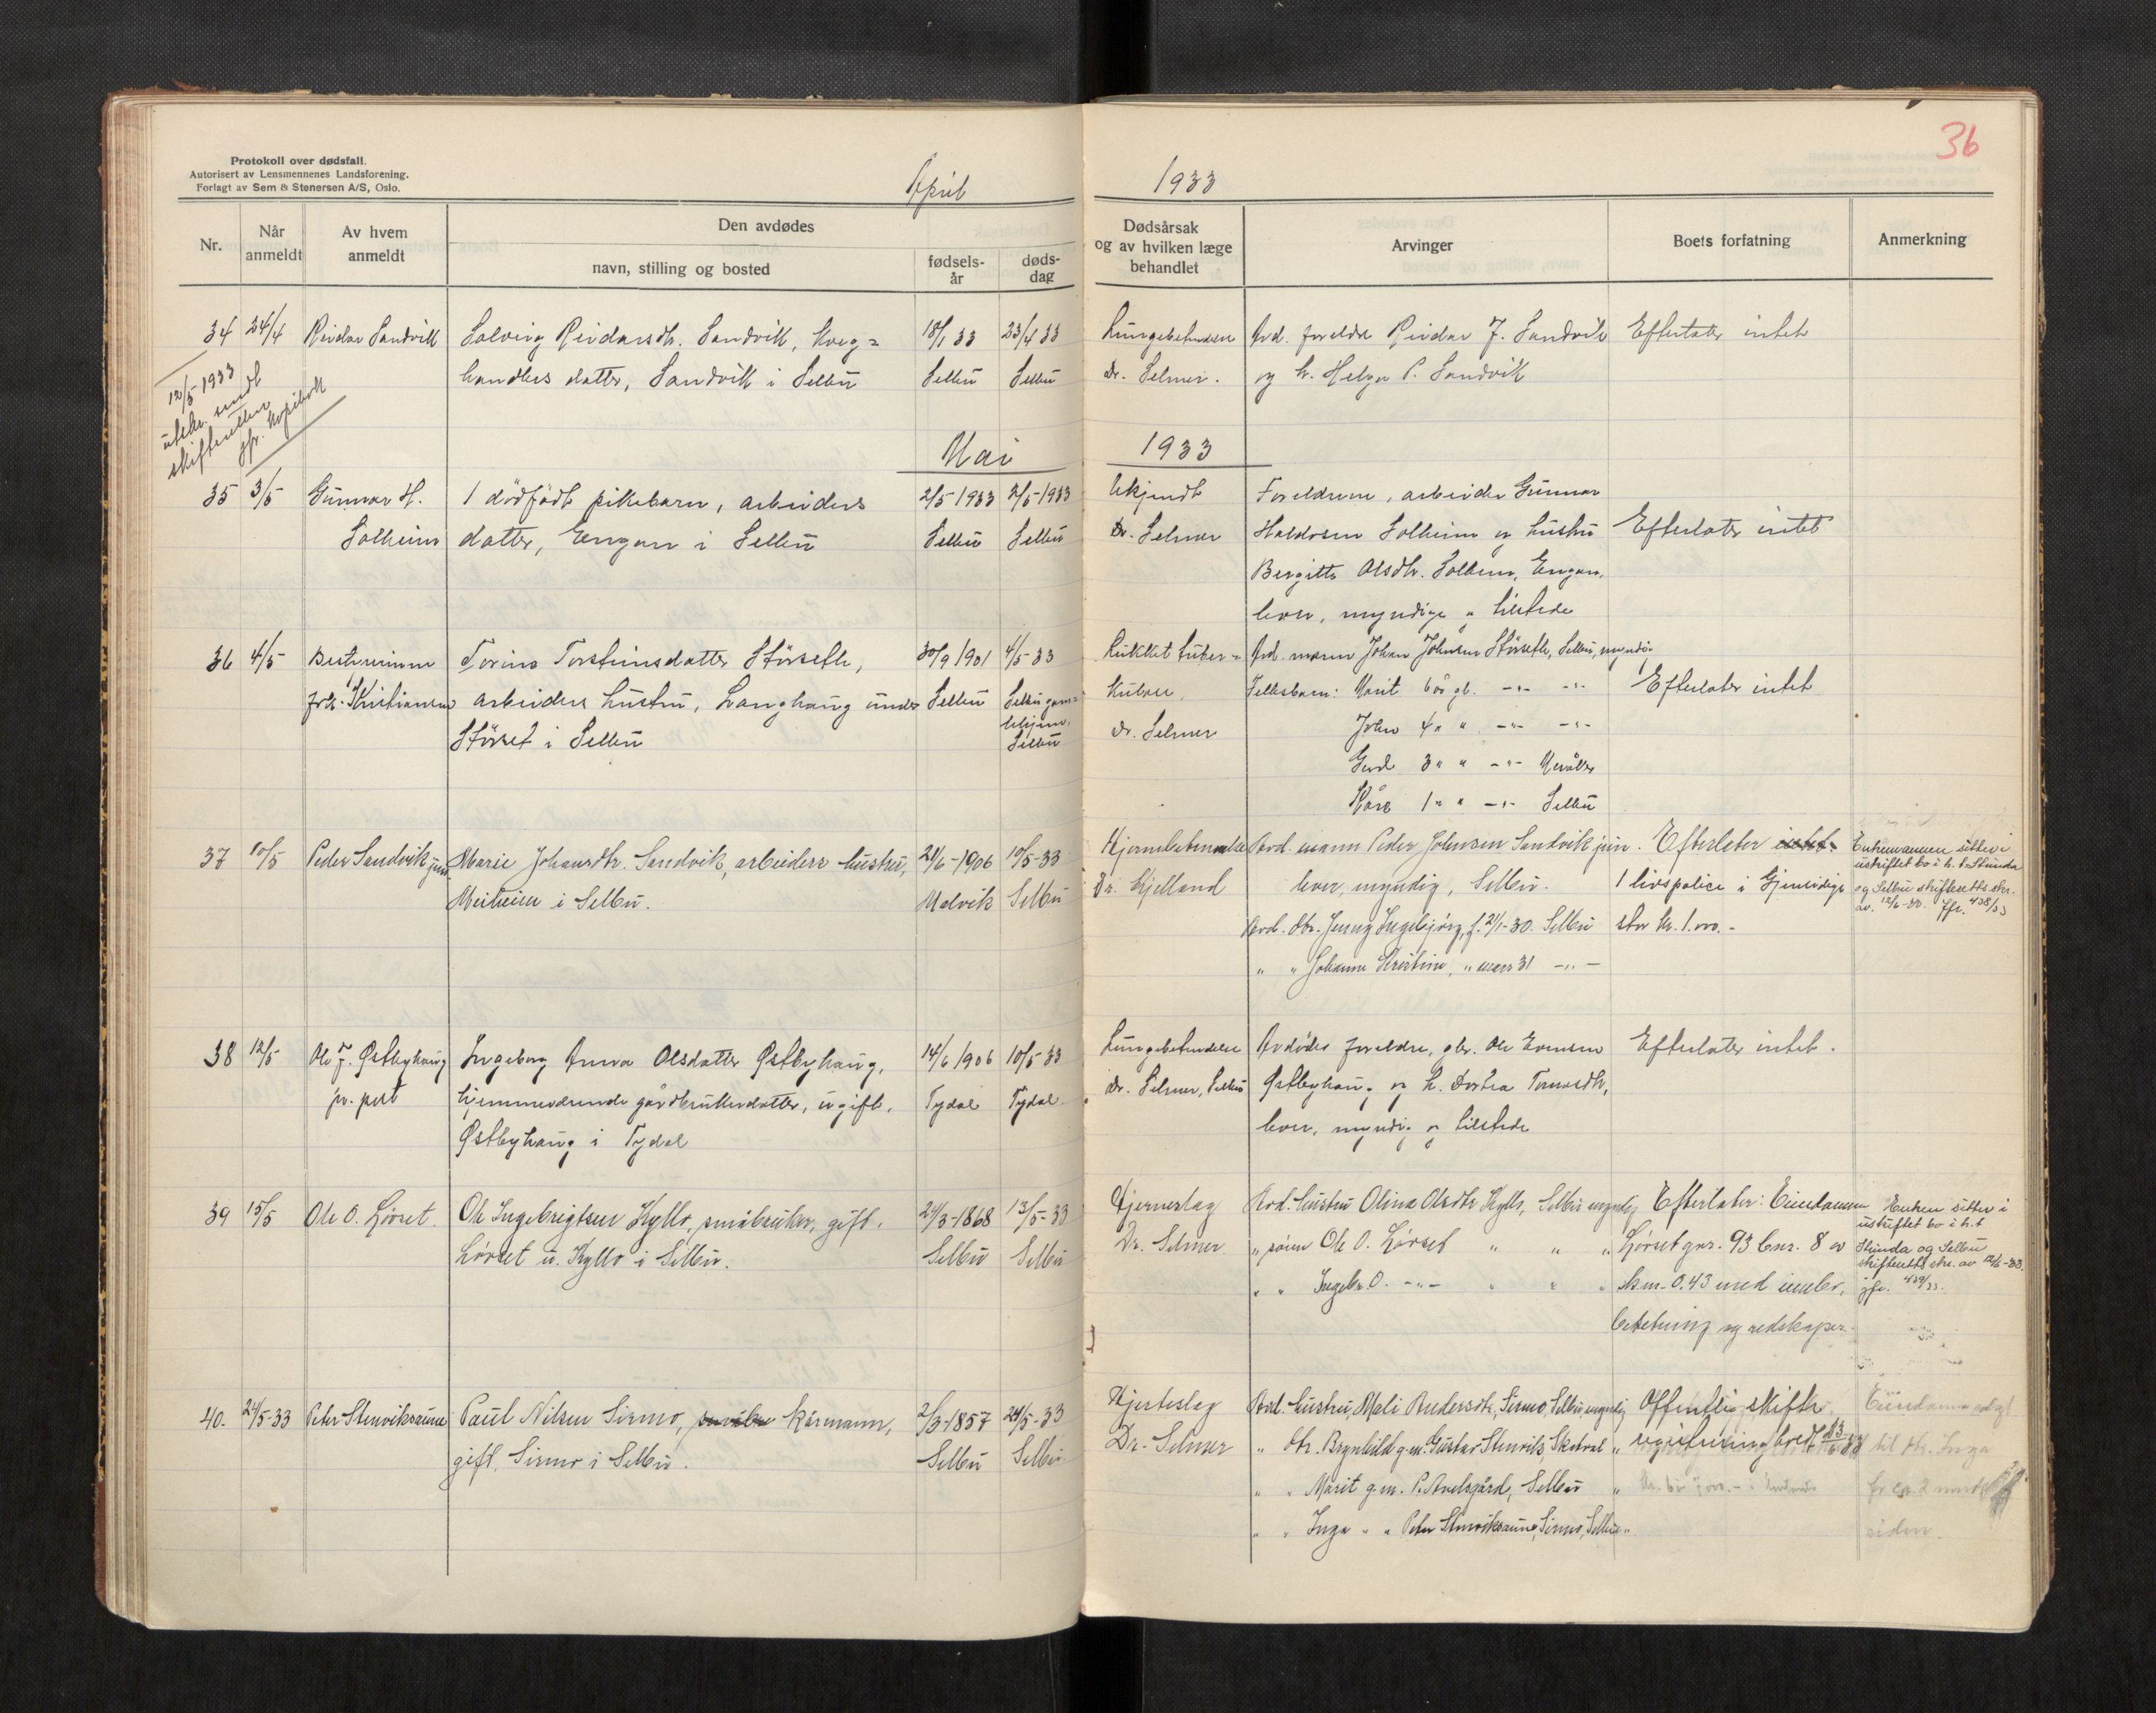 36
Protokoll over dødsfall.
Autorisert av Lensmennenes Landsforening.
Forlagt av Sem & Stenersen A/S, Oslo.
April 1933
Nr.
Når anmeldt
Av hvem anmeldt
Den avdødes
navn, stilling og bosted
fødselsår
dødsdag
Dødsårsak og av hvilken læge behandlet
Arvinger
Boets forfatning
Anmerkning
34 24/4 Reidar Sandvik Solveig Reidarsdtr. Sandvik, kveg= 18/1 33 23/4 33 Lungebetendelse Avd. foreldre Reidar J. Sandvik Efterlater intet
handlers datter, Sandvik i Selbu Selbu Selbu Dr. Selmer. og h. Helga P. Sandvik
12/5 1933
utskr. sendt
skifteretten
jfr. kopibok
Mai 1933
35 3/5 Gunnar H. 1 dødfødt pikebarn, arbeiders 2/5-1933 2/5-1933 Ukjendt Foreldrene, arbeider Gunnar
Solheim datter, Engan i Selbu Selbu Selbu Dr. Selmer Haldosen Solheim og hustru Efterlater intet
Bergitte Olsdtr. Solheim, Engan,
lever, myndige og tilstede
36 4/5 Bestyrerinne Torine Torsteinsdatter Størseth, 30/9 1901 4/5-33 Lukket tuber= Avd. mann Johan Johnsen Størseth, Selbu, myndig
frk. Kristiansen arbeiders hustru, Langhaug under Selbu Selbu gam= kulose. Fellesbarn: Marit 6 år gl. -"- -"- Efterlater intet
Størset i Selbu lehjem, Selbu Dr. Selmer John 4 " " -"- -"-
Gerd 3 " " -"- Meråker
Kåre 1 " " -"- Selbu
37 10/5 Peder Sandvik jun. Marie Johansdtr. Sandvik, arbeiders hustru, 21/6-1906 10/5-33 Hjernebetendelse Avd. mann Peder Johnsen Sandvik jun. Efterlater intet. Enkemannen sitter i
uskiftet bo i h. t. Strinda
Moheim i Selbu. Malvik Selbu Dr. Kjelland lever, myndig, Selbu. 1 livspolice i Gjensidige og Selbu skifteretts skr.
av. 12/6-33. Jfr. 438/33
Avd. dtr. Jenny Ingebjørg, f. 21/1-30. Selbu stor kr. 1.000.-
" " Johanne Kristine, " mars 31 -"-
38 12/5 Ole J. Østbyhaug Ingeborg Anna Olsdatter Østbyhaug, 14/6 1906 10/5-33 Lungebetendelse Avdødes foreldre, gbr. Ole Evensen Efterlater intet.
pr. post hjemmeværende gårdbrukerdatter, ugift, Tydal Tydal Dr. Selmer, Selbu Østbyhaug og h. Dortea Tomasdtr,
Østbyhaug i Tydal lever, myndig og tilstede
39 15/5 Ole O. Lørset. Ole Ingebrigtsen Kyllo, småbruker, gift. 24/3-1868 13/5-33 Hjerneslag Avd. hustru Olina Olsdtr Kyllo, Selbu myndig Efterlater: Eiendommen Enken sitter i
uskiftet bo i h. t
Lørset u. Kyllo i Selbu. Selbu Selbu Dr. Selmer " sønn Ole O. Lørset " " " Lørset gnr. 93 bnr. 8 av Strinda og Selbu
skifteretts skr. av 12/6-33.
" " Ingebr. O. -"- " " " skm. 0.43 med innbo, jfr. 439/33.
besetning og redskaper.
40. 24/5-33 Peter Stenviksaune Paul Nilsen Sirmo, småbr kårmann, 2/3-1857 24/5-33 Hjerteslag Avd. hustru, Mali Andersdtr, Sirmo, Selbu, myndig Offentlig skifte,
gift, Sirmo i Selbu. Selbu Selbu Dr. Selmer " dtr. Brynhild g.m. Gustav Stenvik, Skatval " registrering 23/6 33 til dtr. Inga
" " Marit g.m. P. Avelsgård, Selbu " for ca 2
" " Inga " " Peter Stenviksaune, Sirmo, Selbu " siden.